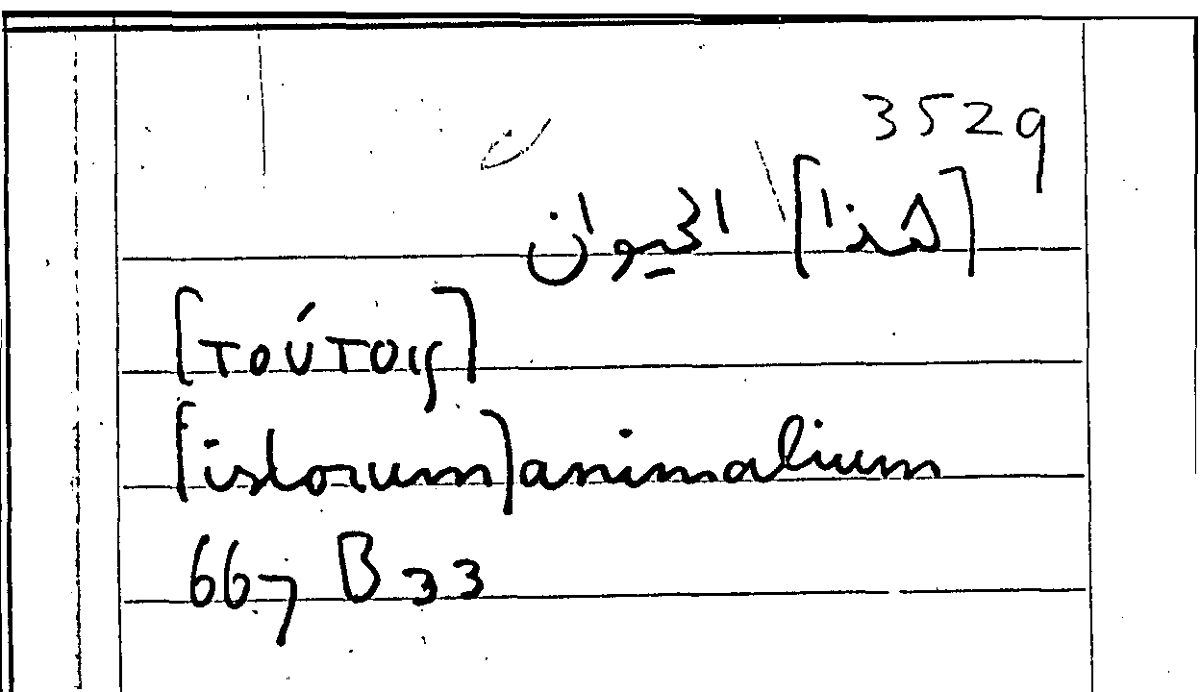 3529
[هذا] الحيوان
[τούτοις]
[istorum] animalium
667 B 33